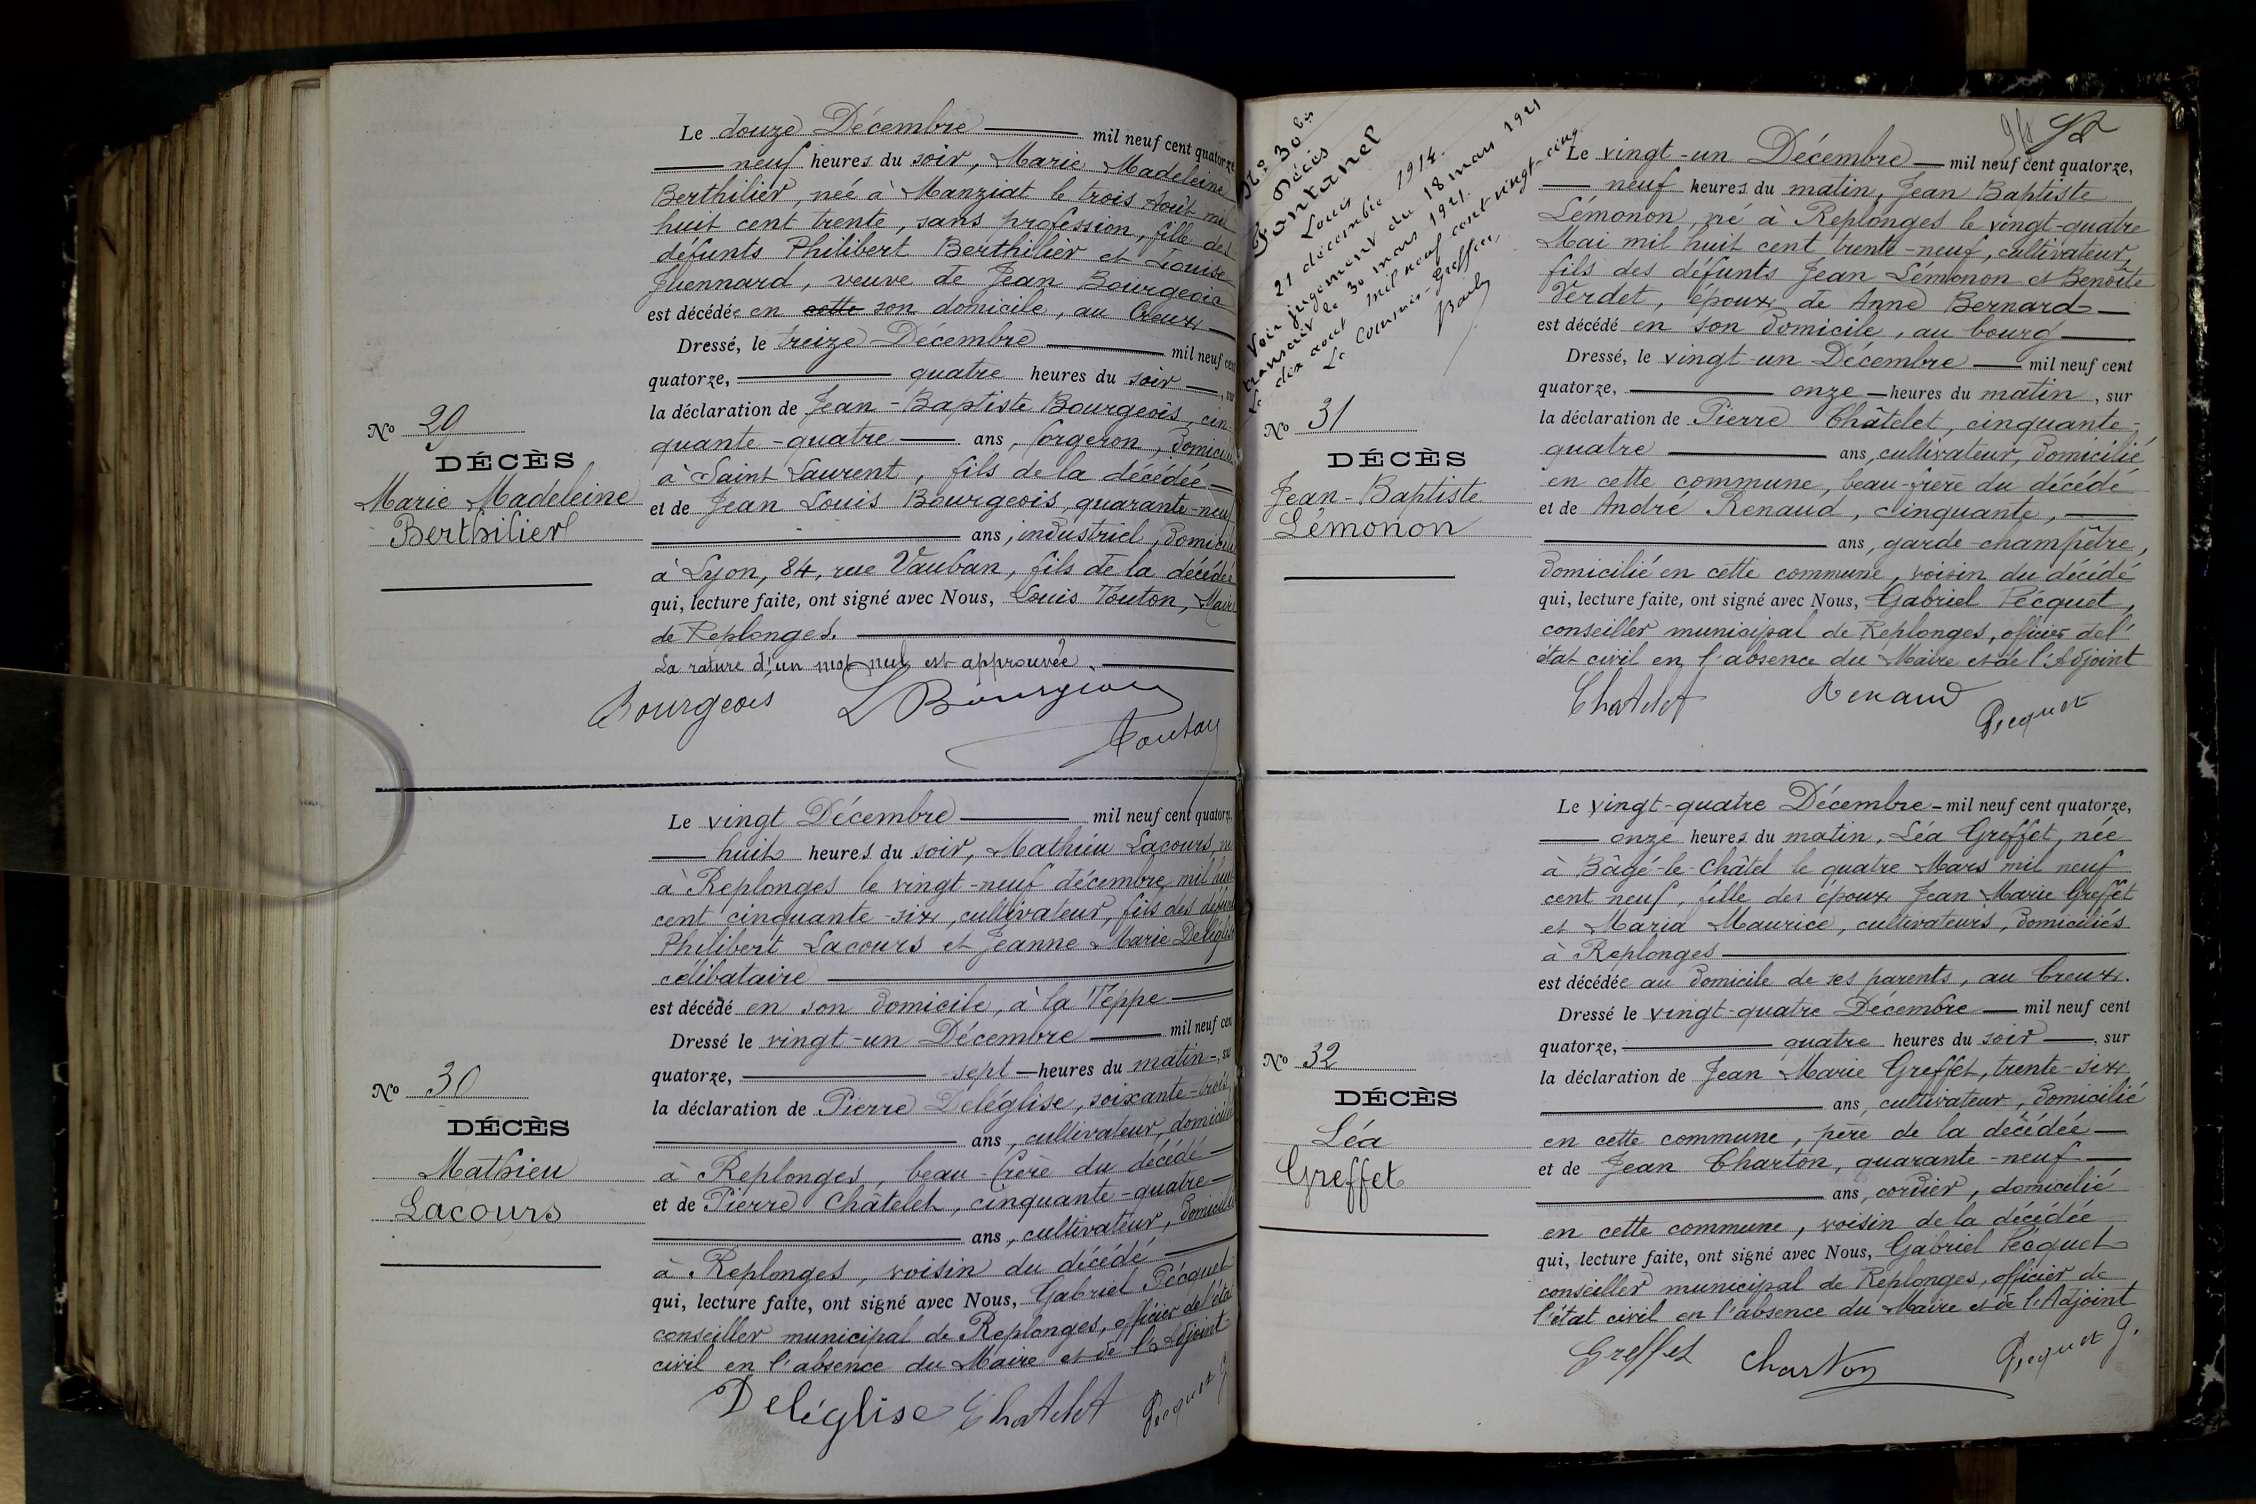 Le douze Décembre mil neuf cent quatorze
neuf heures du soir, Marie Madeleine
Berthilier, née à Manziat le trois Août mil
huit cent trente, sans profession, fille des
défunts Philibert Berthillier et Louise
veuve de Jean Bourgeois
est décédée en cette son domicile, au Creux
Dressé, le treize Décembre mil neuf cent
quatorze, quatre heures du soir, sur
la déclaration de Jean-Baptiste Bourgeois, cin
quante-quatre ans, forgeron, domicilié
à Saint Laurent, fils de la décédée
et de Jean Louis Bourgeois, quarante-neuf
ans, industriel, domicilié
à Lyon, 84, rue Vauban, fils de la décédée
qui, lecture faite, ont signé avec Nous, Louis Touton, Maire
de Replonges.
La rature d'un mot nul est approuvée.
Bourgeois L Bourgeois
Touton
No 29
DÉCÈS
Marie Madeleine
Berthilier
Le vingt Décembre mil neuf cent quatorze,
huit heures du soir, Mathieu Lacours, né
à Replonges le vingt-neuf décembre mil huit
cent cinquante-six, cultivateur, fils des défunts
Philibert Lacours et Jeanne Marie Deléglise
célibataire
est décédé en son domicile, à la Teppe
Dressé le vingt-un Décembre mil neuf cent
quatorze, sept heures du matin, sur
la déclaration de Pierre Deléglise, soixante-trois
ans, cultivateur, domicilié
à Replonges, beau-frère du décédé
et de Pierre Châtelet, cinquante-quatre
ans, cultivateur, domicilié
à Replonges, voisin du décédé
qui, lecture faite, ont signé avec Nous, Gabriel Pécquet
conseiller municipal de Replonges, officier de l'état
civil en l'absence du Maire et de l'Adjoint
Deléglise Chatelet Pecquet G
No 30
DÉCÈS
Mathieu
Lacours
No 30 bis
Décès
Fontanel
Louis
21 décembre 1914.
Voir jugement du 18 mars 1921
transcrit le 30 mars 1921.
Le dix aout mil neuf cent vingt-cinq
Le Commis-Greffier,
Le vingt-un Décembre mil neuf cent quatorze,
neuf heures du matin, Jean Baptiste
Lémonon, né à Replonges le vingt-quatre
Mai mil huit cent trente-neuf, cultivateur,
fils des défunts Jean Lémonon et Benoîte
Verdet, époux de Anne Bernard
est décédé en son domicile, au bourg
Dressé, le vingt-un Décembre mil neuf cent
quatorze, onze heures du matin, sur
la déclaration de Pierre Châtelet, cinquante-
quatre ans, cultivateur, domicilié
en cette commune, beau-frère du décédé
et de André Renaud, cinquante,
ans, garde-champêtre,
domicilié en cette commune, voisin du décédé
qui, lecture faite, ont signé avec Nous, Gabriel Pécquet,
conseiller municipal de Replonges, officier de l'
état civil en l'absence du Maire et de l'Adjoint
Chatelet Renaud Pecquet
No 31
DÉCÈS
Jean-Baptiste
Lémonon
Le vingt-quatre Décembre mil neuf cent quatorze,
onze heures du matin, Léa Greffet, née
à Bâgé-le-Châtel le quatre Mars mil neuf
cent neuf, fille des époux Jean Marie Greffet
et Maria Maurice, cultivateurs, domiciliés
à Replonges
est décédée au domicile de ses parents, au Creux.
Dressé le vingt-quatre Décembre mil neuf cent
quatorze, quatre heures du soir, sur
la déclaration de Jean Marie Greffet, trente-six
ans, cultivateur, domicilié
en cette commune, père de la décédée
et de Jean Charton, quarante-neuf
ans, cordier, domicilié
en cette commune, voisin de la décédée
qui, lecture faite, ont signé avec Nous, Gabriel Pécquet
conseiller municipal de Replonges, officier de
l'état civil en l'absence du Maire et de l'Adjoint
Greffet Charton Pecquet G.
No 32
DÉCÈS
Léa
Greffet